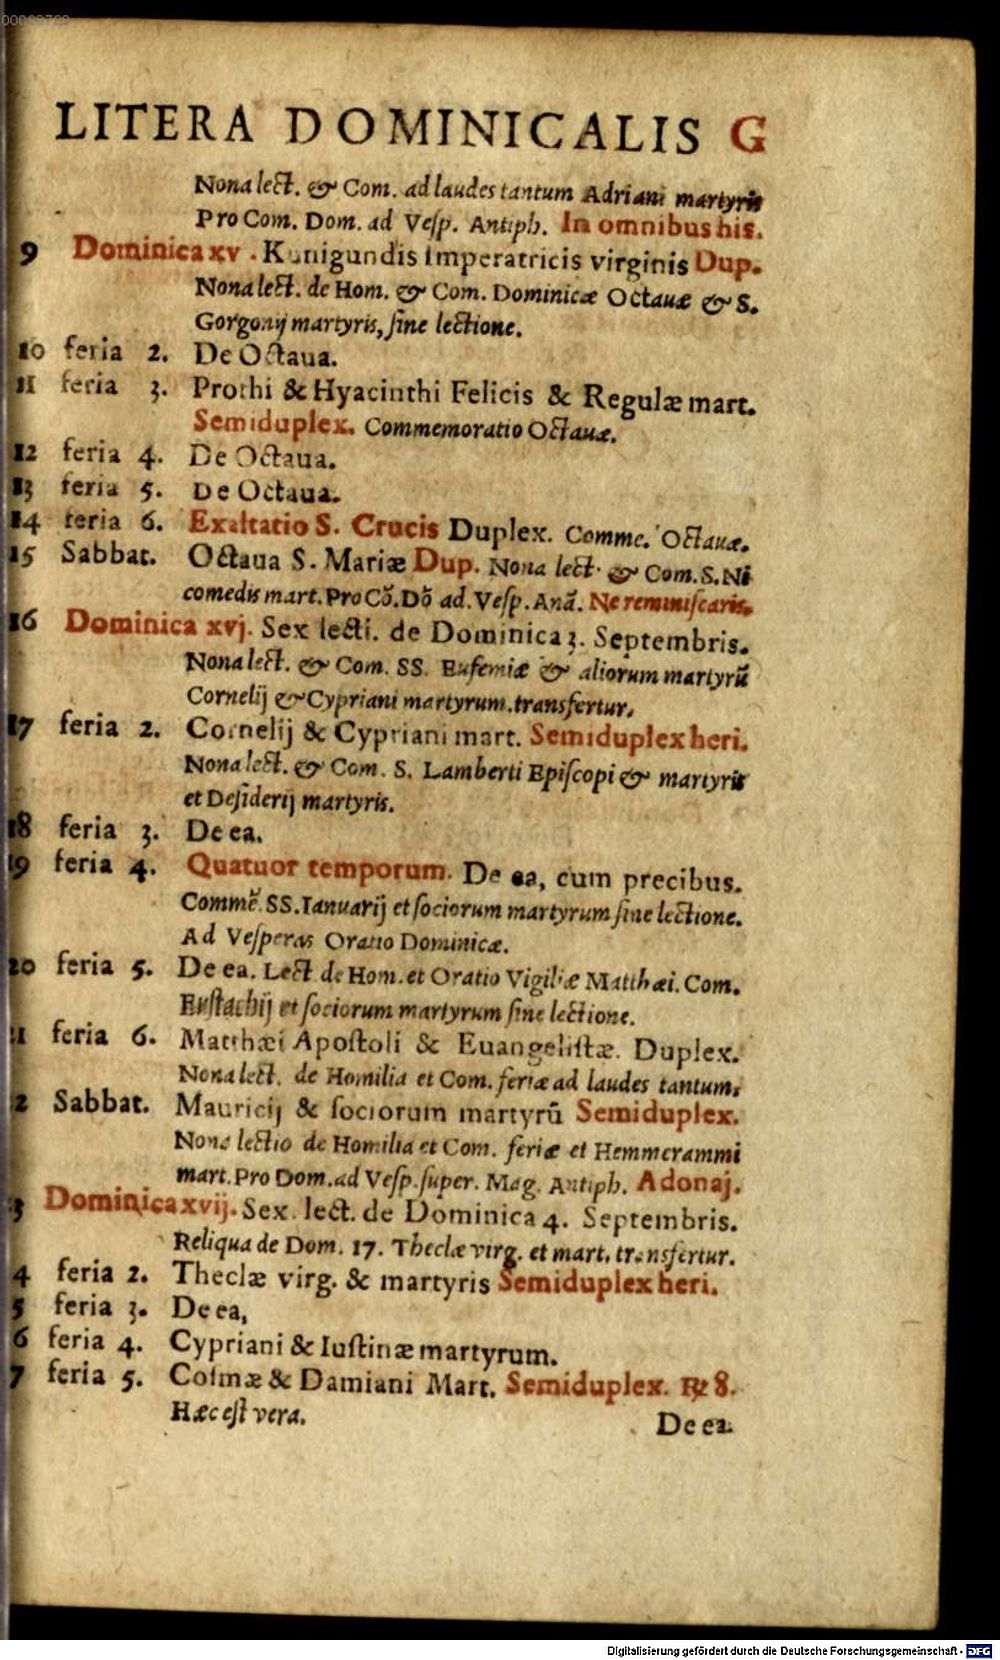 LITERA DOMINICALIS G
Nona lect. & Com. ad laudes tantum Adriani martyris
Pro Com. Dom. ad Vesp. Antiph. In omnibus his.
9 Dominica xv . Kunigundis Imperatricis virginis Dup.
Nona lect. de Hom. & Com. Dominicæ Octauæ & S.
Gorgonij martyris, sine lectione.
10 feria 2. De Octaua.
11 feria 3. Prothi & Hyacinthi Felicis & Regulæ mart.
Semiduplex. Commemoratio Octauæ.
12 feria 4. De Octaua.
13 feria 5. De Octaua.
14 feria 6. Exaltatio S. Crucis Duplex. Comme. Octauæ.
15 Sabbat. Octaua S. Mariæ Dup. Nona lect. & Com. S. Ni
comedis mart. Pro Cõ. Dõ ad. Vesp. Anã. Ne reminiscaris.
16 Dominica xvj. Sex lecti. de Dominica 3. Septembris.
Nona lect. & Com. SS. Eufemiæ & aliorum martyrũ
Cornelij & Cypriani martyrum. transfertur.
17 feria 2. Cornelij & Cypriani mart. Semiduplex heri.
Nona lect. & Com. S. Lamberti Episcopi & martyris
et Desiderij martyris.
18 feria 3. De ea.
19 feria 4. Quatuor temporum. De ea, cum precibus.
Commẽ. SS. Ianuarij et sociorum martyrum sine lectione.
Ad Vesperas Oratio Dominicæ.
20 feria 5. De ea. Lect de Hom. et Oratio Vigiliæ Matthæi. Com.
Eustachij et sociorum martyrum sine lectione.
21 feria 6. Matthæi Apostoli & Euangelistæ. Duplex.
Nona lect. de Homilia et Com. feriæ ad laudes tantum.
2 Sabbat. Mauricij & sociorum martyrũ Semiduplex.
Nona lectio de Homilia et Com. feriæ et Hemmerammi
mart. Pro Dom. ad Vesp. super. Mag. Antiph. Adonaj.
3 Dominica xvij. Sex. lect. de Dominica 4. Septembris.
Reliqua de Dom. 17. Theclæ virg. et mart. transfertur.
4 feria 2. Theclæ virg. & martyris Semiduplex heri.
5 feria 3. De ea,
6 feria 4. Cypriani & Iustinæ martyrum.
7 feria 5. Cosmæ & Damiani Mart. Semiduplex. ℞ 8.
Hæc est vera.
De ea.
Digitalisierung gefördert durch die Deutsche Forschungsgemeinschaft - DFG